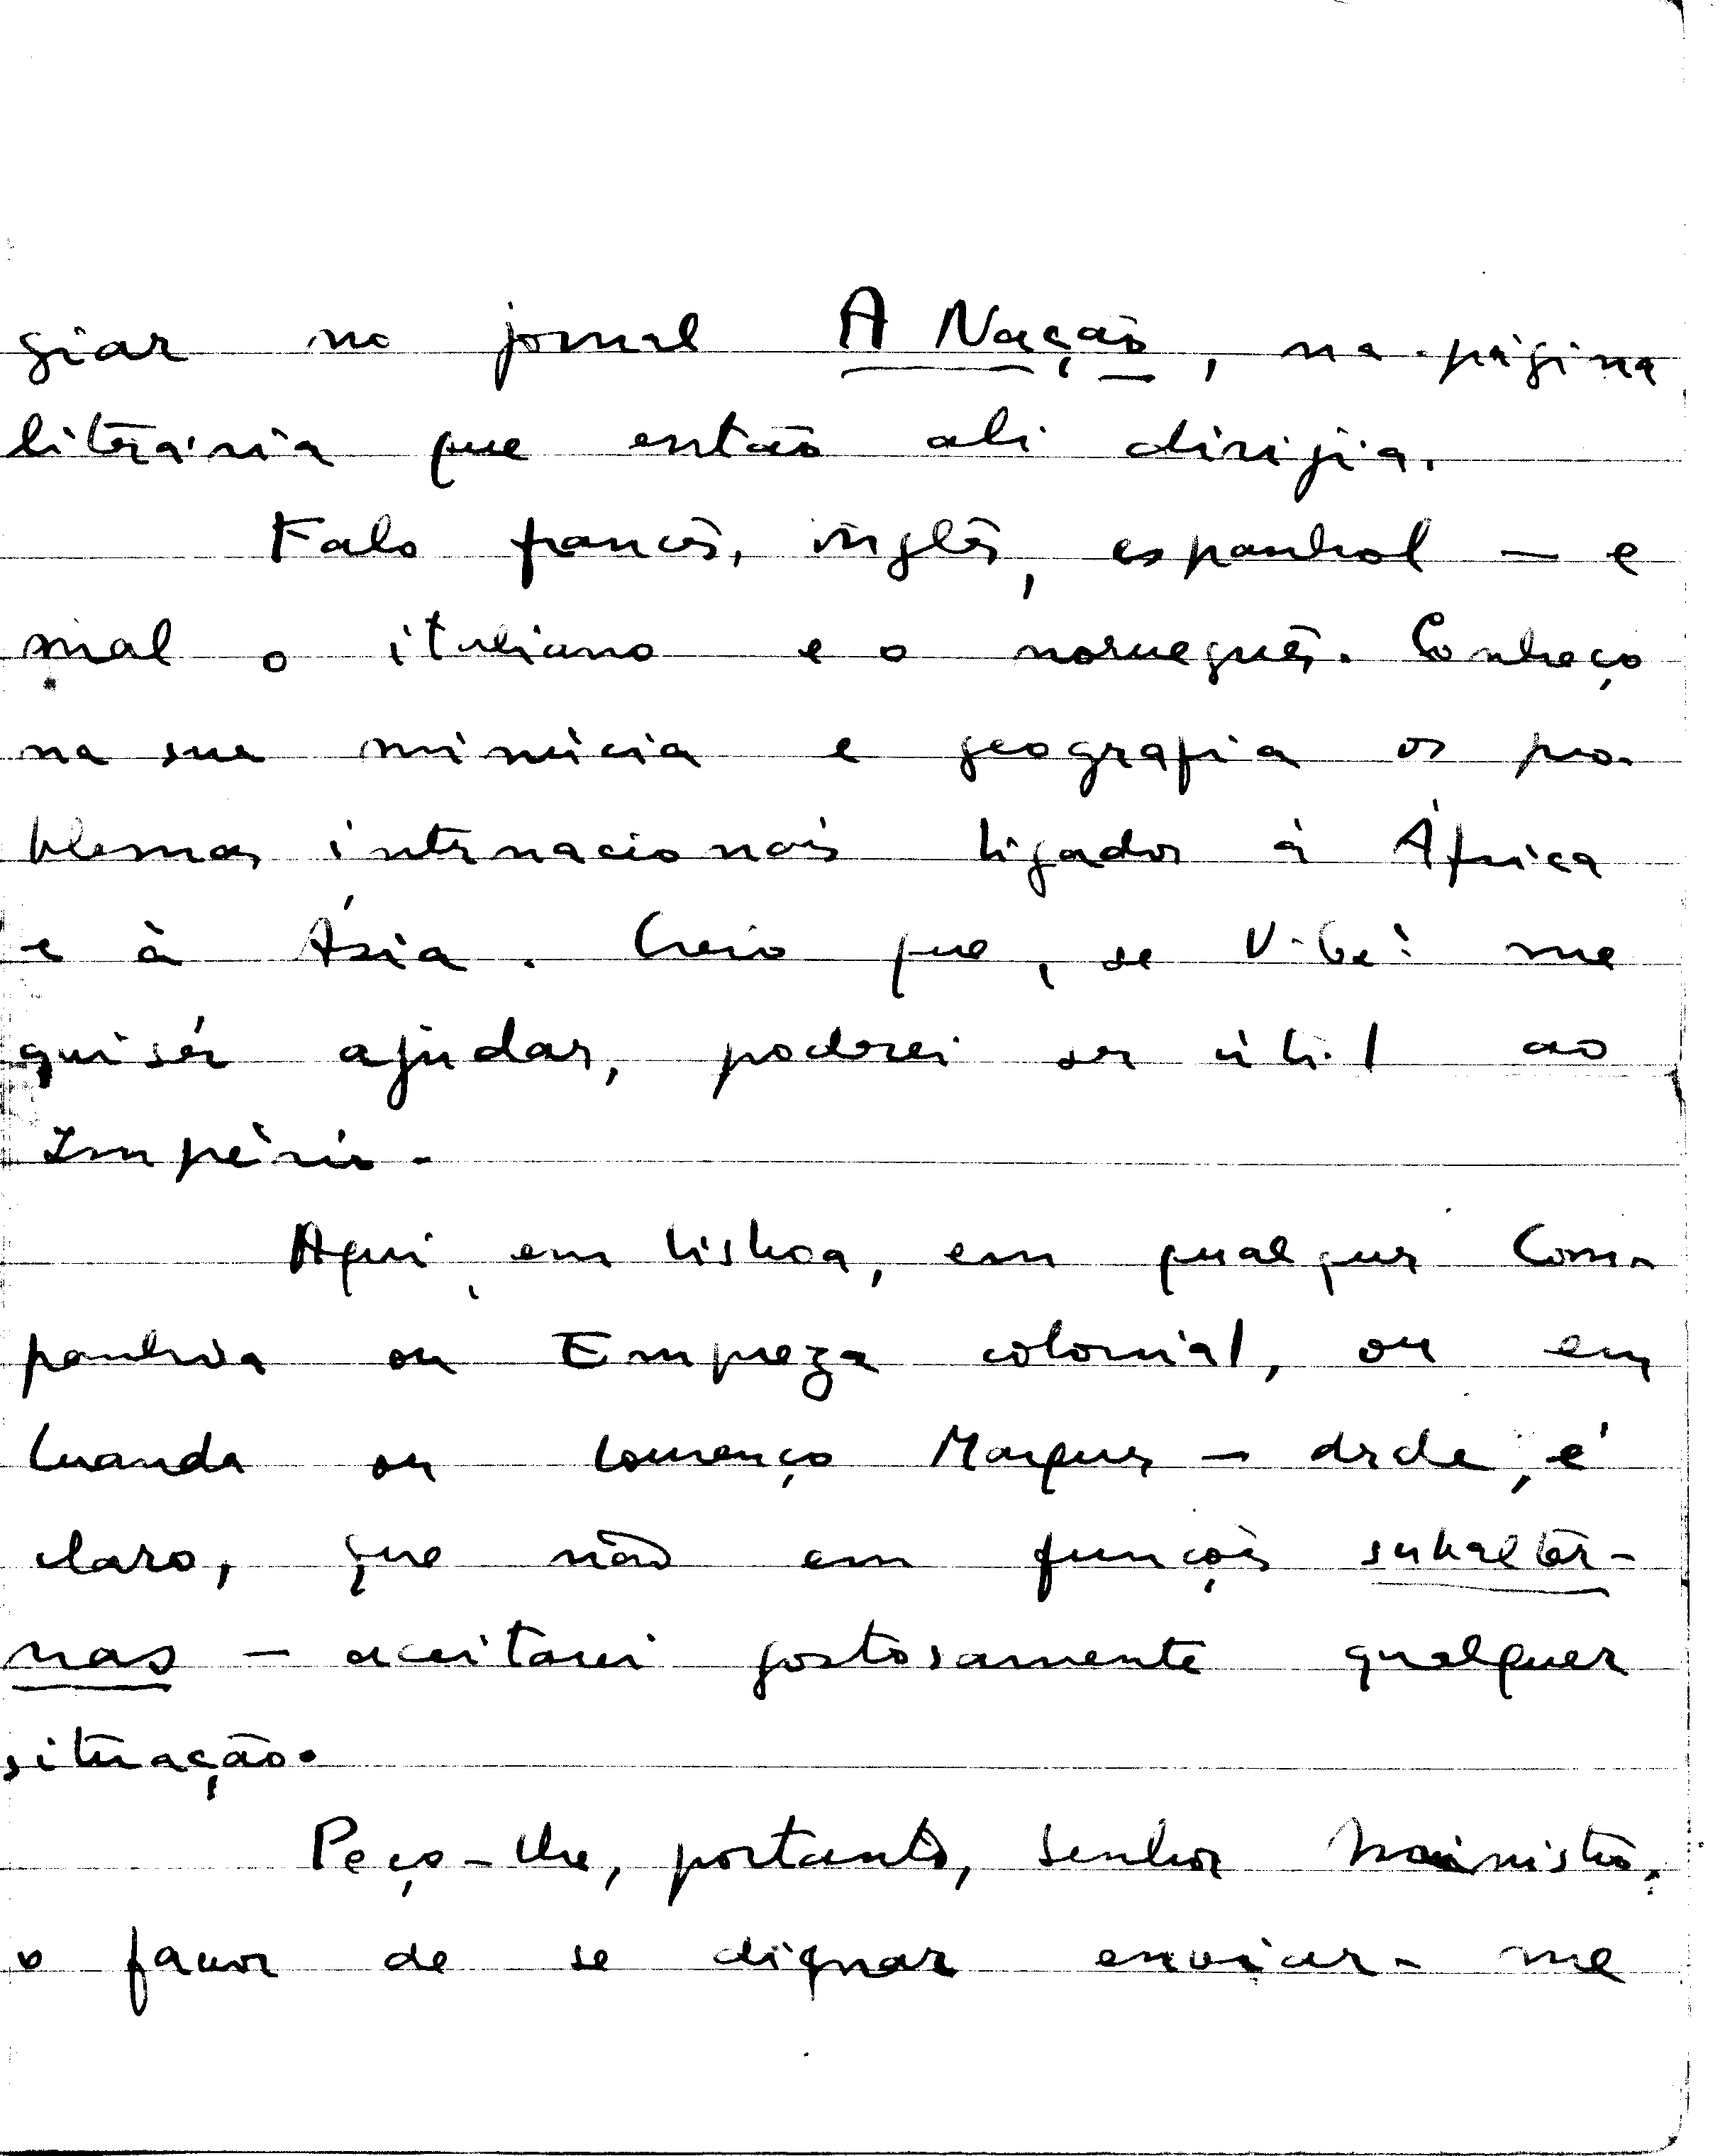 giar no jornal A Nação, na página
literária que então ali dirigia.
Falo francês, inglês, espanhol — e
mal o italiano e o norueguês. Conheço
na sua minúcia e geografia os pro-
blemas internacionais ligados à África
e à Ásia. Creio que, se V. Exª me
quisér ajudar, poderei ser útil ao
Império.
Aqui, em Lisboa, em qualquer Com-
panhia ou Empreza colonial, ou em
Luanda ou Lourenço Marques — desde, é
claro, que não em funções subaltér-
nas — aceitarei gostosamente qualquer
situação.
Peço-lhe, portanto, Senhor Ministro,
o favor de se dignar enviar-me